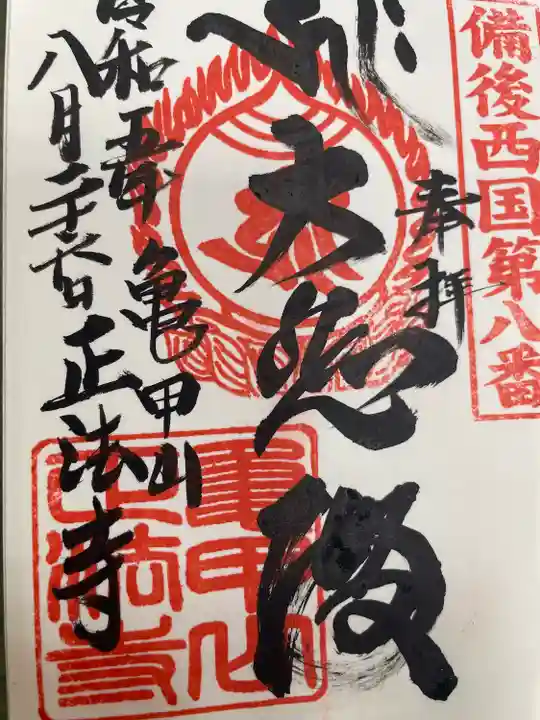 備後西国第八番
奉拝
大悲殿
亀甲山
正法寺
令和五年
八月二十六日
亀甲山
正法寺